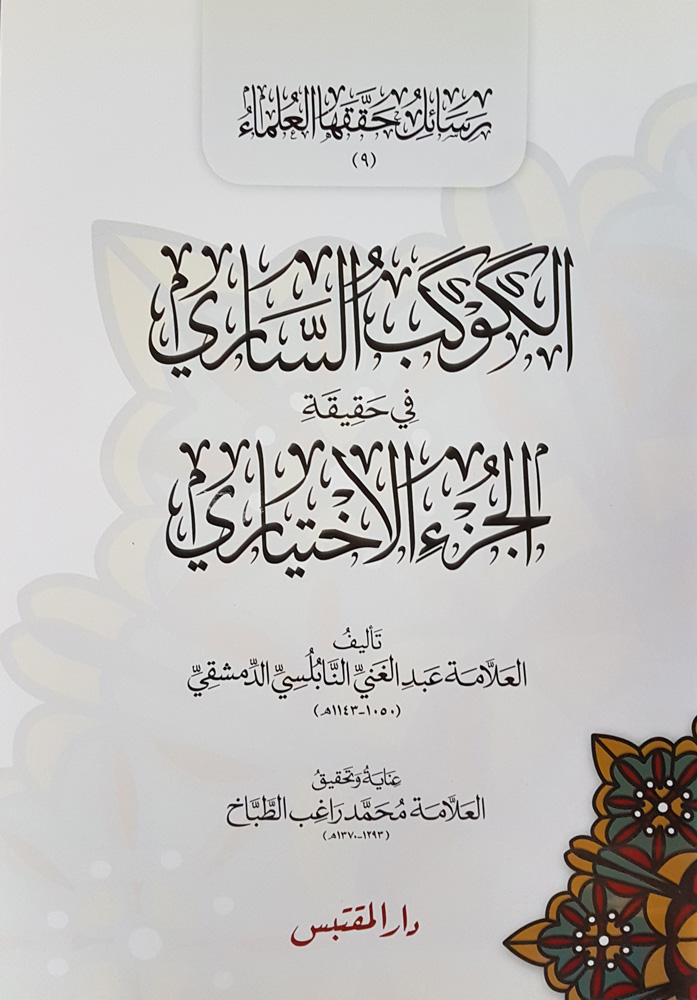 رَسَائِلُ حَقَّقَهَا العُلَمَاءُ
(٩)
الكَوْكَبُ السَّارِي
فِي حَقِيقَةِ
الجُزْءِ الاخْتِيَارِي
تَأْلِيفُ
العَلَّامَة عَبدِ الغَنيِّ النَّابُلُسِيِّ الدِّمشقِيِّ
(١٠٥٠-١١٤٣ه)
عِنَايَةُ وَتَحقِيقُ
العَلَّامَة مُحَمَّد رَاغِب الطَّبَّاخ
(١٢٩٣-١٣٧٠ه)
دار المقتبس